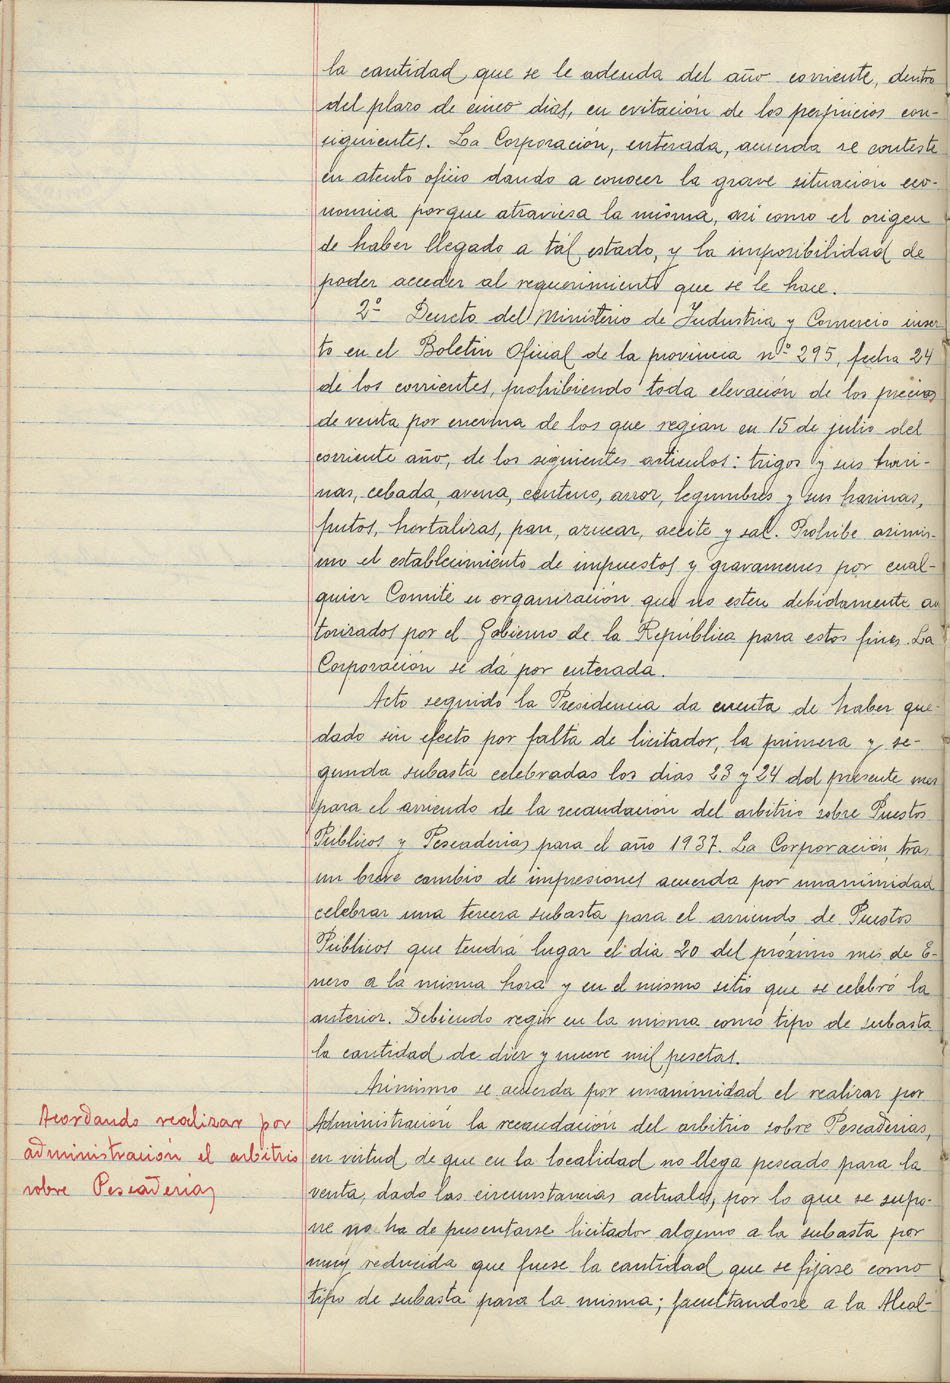 la cantidad que se le adeuda del año corriente, dentro
del plazo de cinco dias, en evitación de los perjuicios con-
siguientes. La Corporación, enterada, acuerda se conteste
en atento oficio dando a conocer la grave situación eco-
nomica porque atraviesa la misma, asi como el origen
de haber llegado a tal estado, y la imposibilidad de
poder acceder al requerimiento que se le hace.
2º Decreto del Ministerio de Industria y Comercio inser
to en el Boletin Oficial de la provincia nº 295, fecha 24
de los corrientes, prohibiendo toda elevación de los precios
de venta por encima de los que regian en 15 de julio del
corriente año, de los siguientes articulos: trigos y sus hari-
nas, cebada, avena, centeno, arroz, legumbres y sus harinas,
frutos, hortalizas, pan, azucar, aceite y sal. Prohibe asimis-
mo el establecimiento de impuestos y gravamenes por cual-
quier Comité u organización que no esten debidamente au
torizados por el Gobierno de la República para estos fines. La
Corporación se dá por enterada.
Acto seguido la Presidencia da cuenta de haber que-
dado sin efecto por falta de licitador, la primera y se-
gunda subasta celebradas los dias 23 y 24 del presente mes
para el arriendo de la recaudación del arbitrio sobre Puestos
Públicos y Pescaderias para el año 1937. La Corporación, tras
un breve cambio de impresiones acuerda por unanimidad
celebrar una tercera subasta para el arriendo de Puestos
Públicos que tendrá lugar el dia 20 del próximo mes de E-
nero a la misma hora y en el mismo sitio que se celebró la
anterior. Debiendo regir en la misma como tipo de subasta
la cantidad de diez y nueve mil pesetas.
Asimismo se acuerda por unanimidad el realizar por
Administración la recaudación del arbitrio sobre Pescaderias,
en virtud de que en la localidad no llega pescado para la
venta, dado las circunstancias actuales, por lo que se supo-
ne no ha de presentarse licitador alguno a la subasta por
muy reducida que fuese la cantidad que se fijase como
tipo de subasta para la misma; facultandose a la Alcal-
Acordando realizar por
administración el arbitrio
sobre Pescaderias